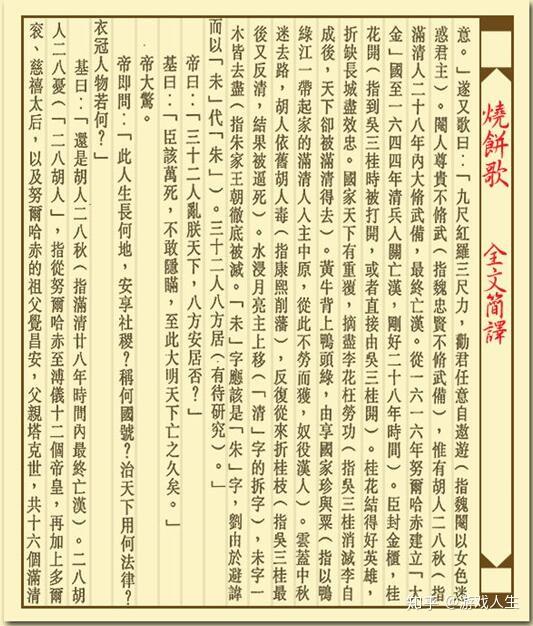 燒餅歌 全文簡譯
意。」遂又歌曰：「九尺紅羅三尺力，勸君任意自遨遊（指魏閹以女色迷
惑君主）。閹人尊貴不脩武（指魏忠賢不脩武備），惟有胡人二八秋（指
滿清人二十八年內大脩武備，最終亡漢。從一六一六年努爾哈赤建立「大
金」國至一六四四年清兵人關亡漢，剛好二十八年時間）。臣封金櫃，桂
花開（指到吳三桂時被打開，或者直接由吳三桂開）。桂花結得好英雄，
折缺長城盡效忠。國家天下有重覆，摘盡李花枉勞功（指吳三桂消滅李自
成後，天下卻被滿清得去）。黃牛背上鴨頭綠，由享國家珍與粟（指以鴨
綠江一帶起家的滿清人人主中原，從此不勞而獲，奴役漢人）。雲蓋中秋
迷去路，胡人依舊胡人毒（指康熙削藩），反復從來折桂枝（指吳三桂最
後又反清，結果被逼死）。水浸月亮主上移（「清」字的拆字），未字一
木皆去盡（指朱家王朝徹底被滅。「未」字應該是「朱」字，劉由於避諱
而以「未」代「朱」）。三十二人八方居（有待研究）。」
帝曰：「三十二人亂朕天下，八方安居否？」
基曰：「臣該萬死，不敢隱瞞，至此大明天下亡之久矣。」
帝大驚。
帝即問：「此人生長何地，安享社稷？稱何國號？治天下用何法律？
衣冠人物若何？」
基曰：「還是胡人二八秋（指滿清廿八年時間內最終亡漢）。二八胡
人二八憂（「二八胡人」，指從努爾哈赤至溥儀十二個帝皇，再加上多爾
袞、慈禧太后，以及努爾哈赤的祖父覺昌安，父親塔克世，共十六個滿清
知乎 @游戏人生